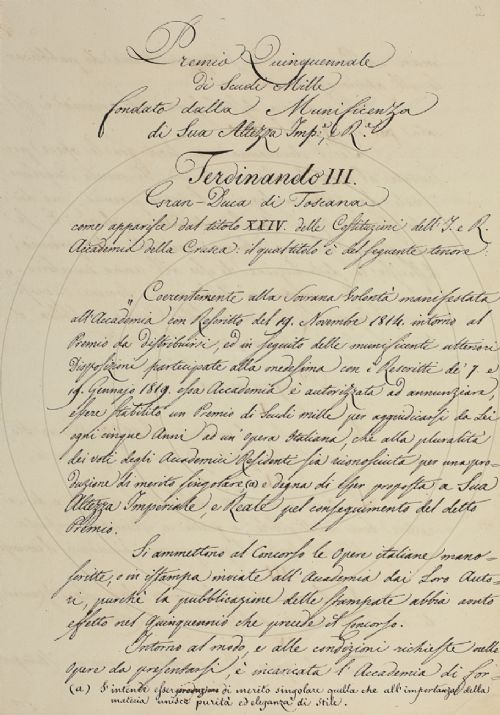 Premio Quinquennale
di Scudi Mille
fondato dalla Munificenza
di Sua Altezza Imp.e, e R.e
Ferdinando III.
Gran-Duca di Toscana
come apparisce dal titolo XXIV. delle Costituzioni dell'I. e R.
Accademia della Crusca: il qual titolo è del seguente tenore.
„Coerentemente alla Sovrana Volontà manifestata
all'Accademia con Rescritto del 19. Novembre 1814. intorno al
Premio da distribuirsi, ed in seguito delle munificente ulteriori
disposizioni partecipate alla medesima con i Rescritti de' 7 e
19. Gennajo 1819. essa Accademia è autorizzata ad annunziare,
essere stabilito un Premio di Scudi mille per aggiudicarsi da Lei
ogni cinque Anni ad un'Opera Italiana, che alla pluralità
dei voti degli Accademici Residenti sia riconosciuta per una pro-
duzione di merito singolare (a) e degna di esser proposta a Sua
Altezza Imperiale, e Reale pel conseguimento del detto
Premio.
Si ammettino al Concorso le Opere italiane mano-
scritte, o in istampa inviate all'Accademia dai Loro Auto-
ri, purchè la pubblicazione delle stampate abbia avuto
effetto nel Quinquennio che precede il Concorso.
Intorno al modo, e alle condizioni richieste nelle
opere da presentarsi, è incaricata l'Accademia di for-
(a) S'intende esser produzione di merito singolare quella che all'importanza della
materia unisce purità ed eleganza di stile.